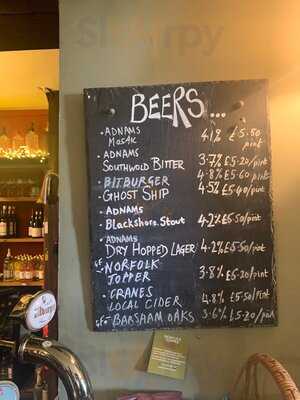 BEERS...
• ADNAMS
Mosaic 4.1% £5.50
pint
• ADNAMS
SOUTHWOLD BITTER 3.7% £5.20/pint
• BITBURGER 4.8% £5.60 pint
• GHOST SHIP 4.5% £5.40/pint
• ADNAMS
BLACKSHORE STOUT 4.2% £5.50/pint
• ADNAMS
DRY HOPPED LAGER 4.2% £5.50/pint
GF • NORFOLK
TOPPER 3.8% £5.20/pint
• CRANES
LOCAL CIDER 4.8% £5.50/pint
GF • BARSHAM OAKS 3.6% £5.20/pint